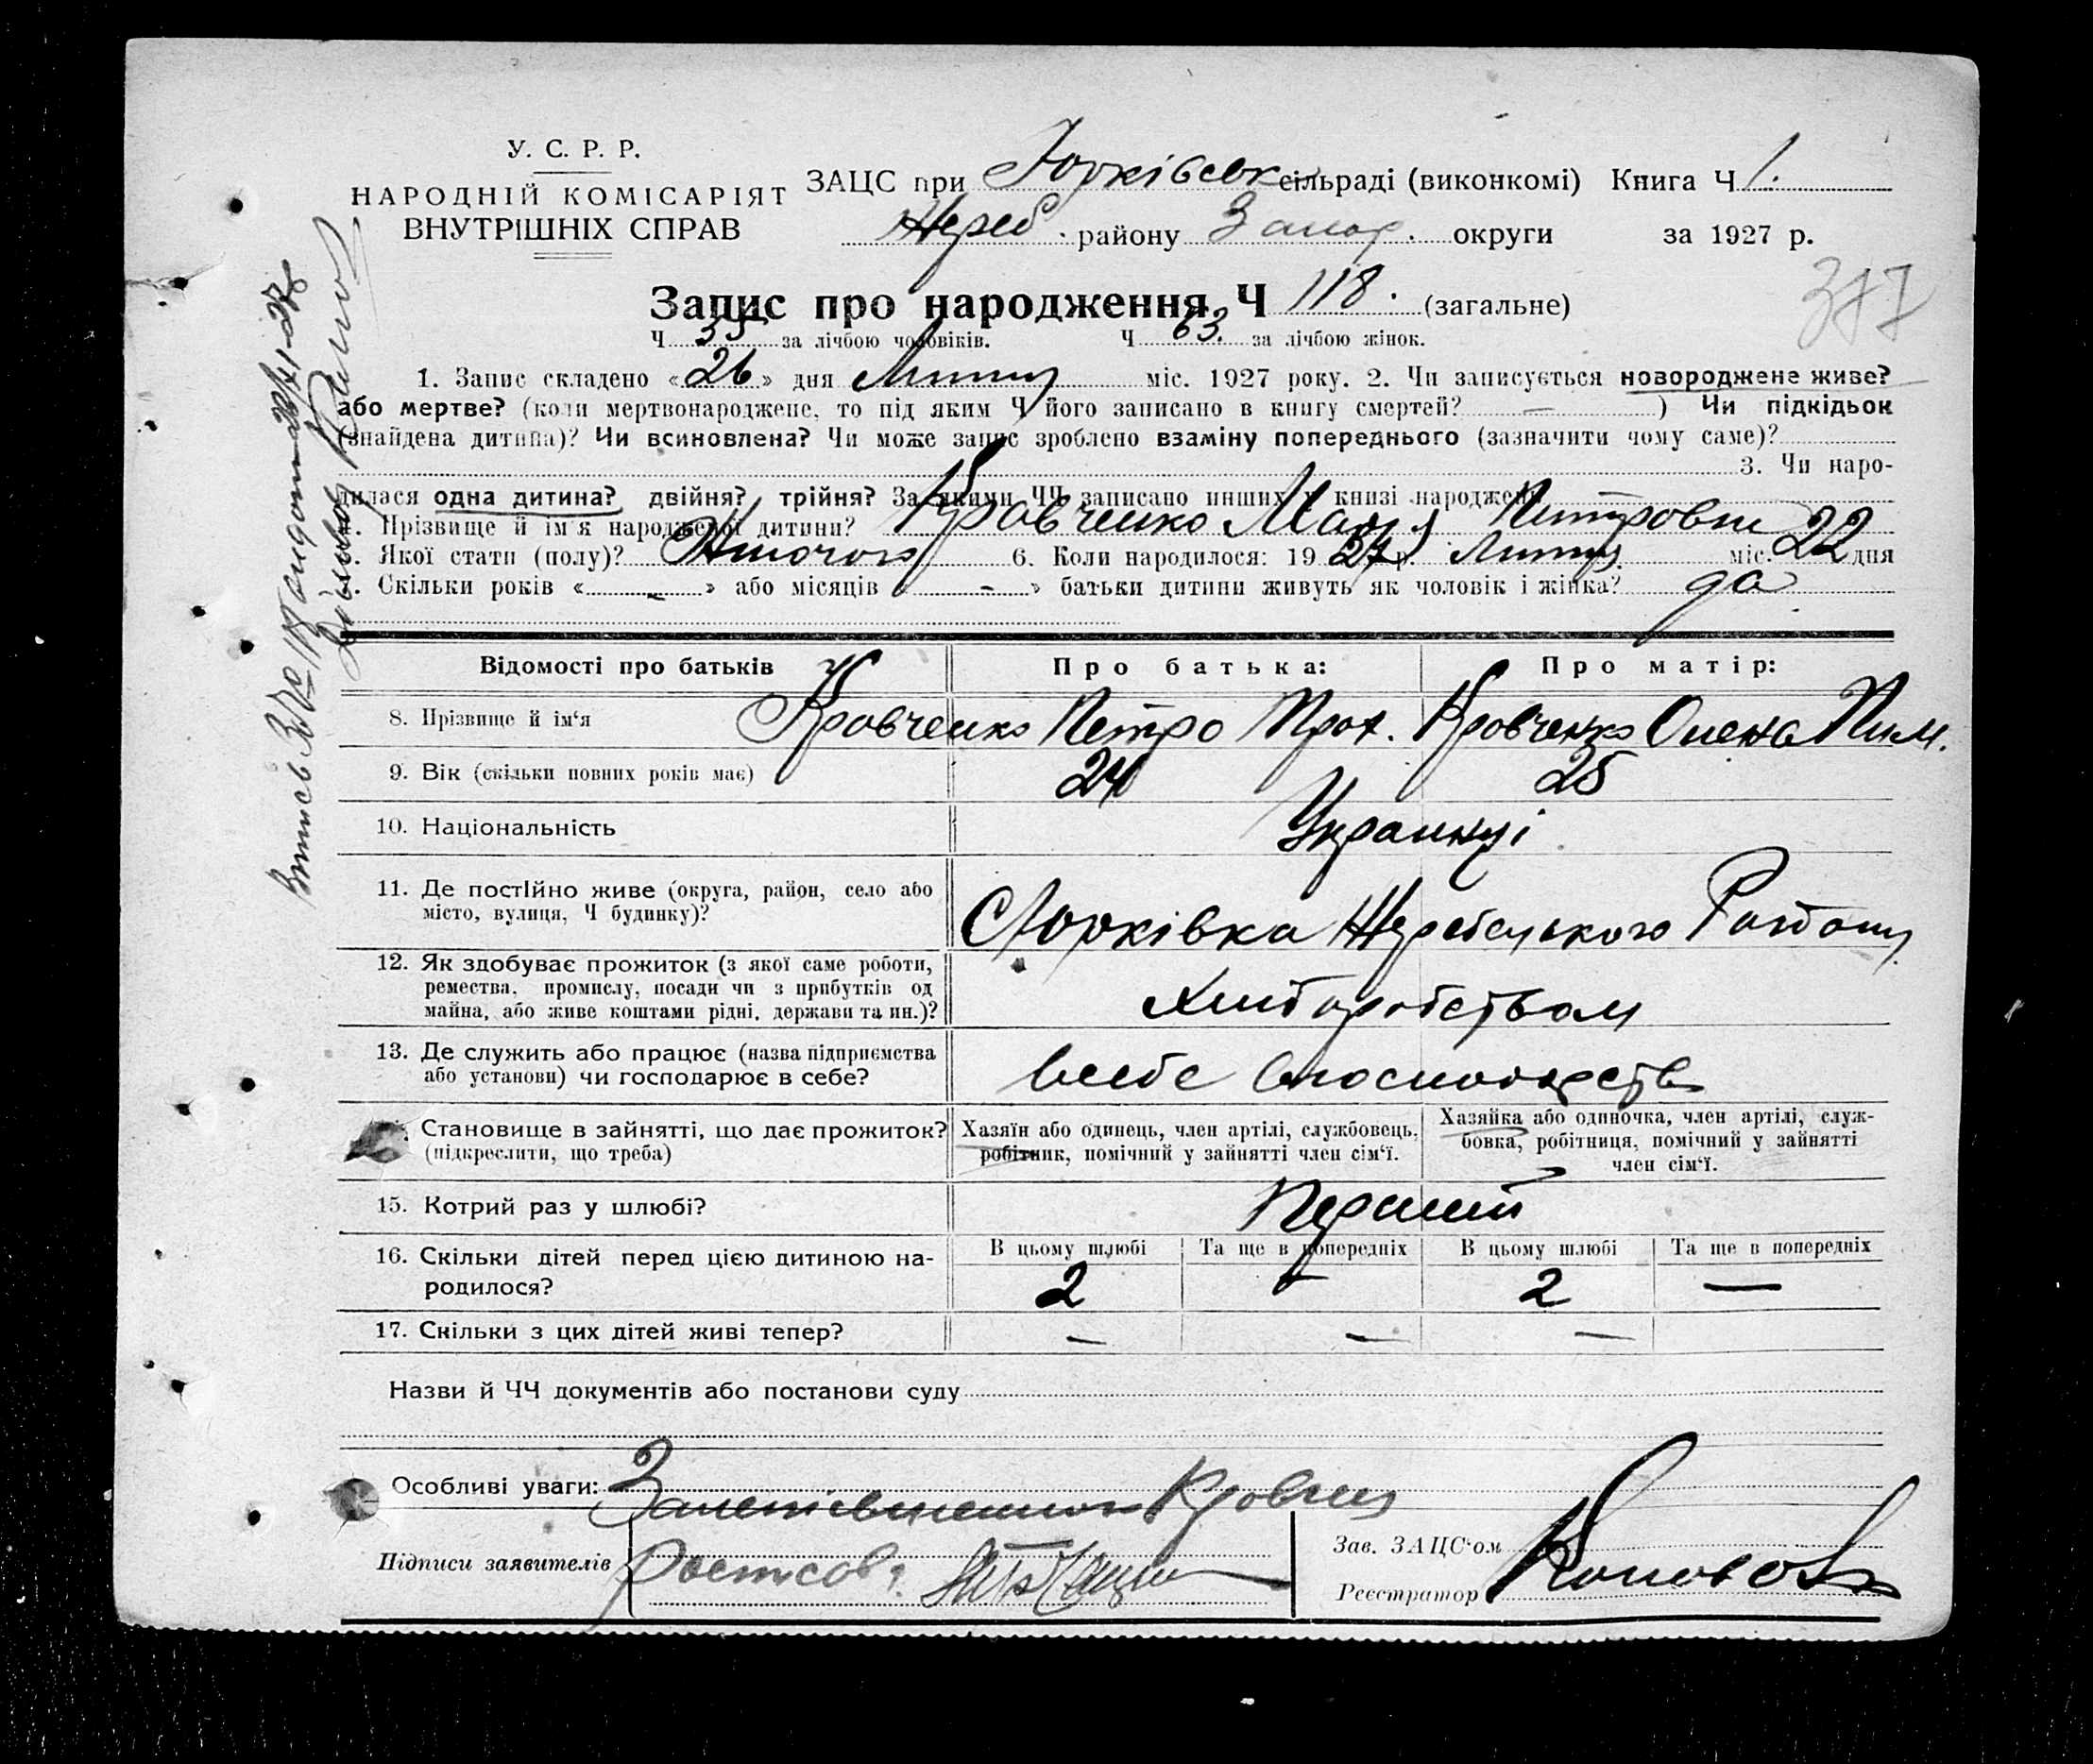 У. С. Р. Р.
НАРОДНІЙ КОМІСАРІЯТ
ВНУТРІШНІХ СПРАВ
ЗАЦС при Юрківськ сільраді (виконкомі) Книга Ч 1.
Жереб. району Запор. округи за 1927 р.
377
Запис про народження Ч 118. (загальне)
Ч 55 за лічбою чоловіків. Ч 63. за лічбою жінок.
1. Запис складено «26» дня Липня міс. 1927 року. 2. Чи записується новороджене живе?
або мертве? (коли мертвонароджене, то під яким Ч його записано в книгу смертей? — ) Чи підкідьок
(знайдена дитина)? Чи всиновлена? Чи може запис зроблено взаміну попереднього (зазначити чому саме)?
3. Чи наро-
дилася одна дитина? двійня? трійня? За якими ЧЧ записано инших у книзі народжень
4. Прізвище й ім'я народженої дитини? Кравченко Марія Петровна
5. Якої статі (полу)? Жіночого 6. Коли народилося: 1927 р. Липня міс. 22 дня
7. Скільки років « — » або місяців « — » батьки дитини живуть як чоловік і жінка? да
Відомості про батьків Про батька: Про матір:
8. Прізвище й ім'я Кравченко Петро Прох. Кравченко Олена Пил.
9. Вік (скільки повних років має) 24 25
10. Національність Украинці
11. Де постійно живе (округа, район, село або
місто, вулиця, Ч будинку)?
С Юрківка Жеребецького Району
12. Як здобуває прожиток (з якої саме роботи,
ремества, промислу, посади чи з прибутків од
майна, або живе коштами рідні, держави та ин.)?
Хліборобством
13. Де служить або працює (назва підприємства
або установи) чи господарює в себе?
всебе
14. Становище в зайнятті, що дає прожиток?
(підкреслити, що треба)
Хазяїн або одинець, член артілі, службовець,
робітник, помічний у зайнятті член сім'ї.
Хазяйка або одиночка, член артілі, служ-
бовка, робітниця, помічний у зайнятті
член сім'ї.
15. Котрий раз у шлюбі? Перший
16. Скільки дітей перед цією дитиною на-
родилося?
В цьому шлюбі Та ще в попередніх В цьому шлюбі Та ще в попередніх
2 — 2 —
17. Скільки з цих дітей живі тепер? — — —
Назви й ЧЧ документів або постанови суду
Особливі уваги:
Підписи заявителів
Зав. ЗАЦС'ом
Реєстратор